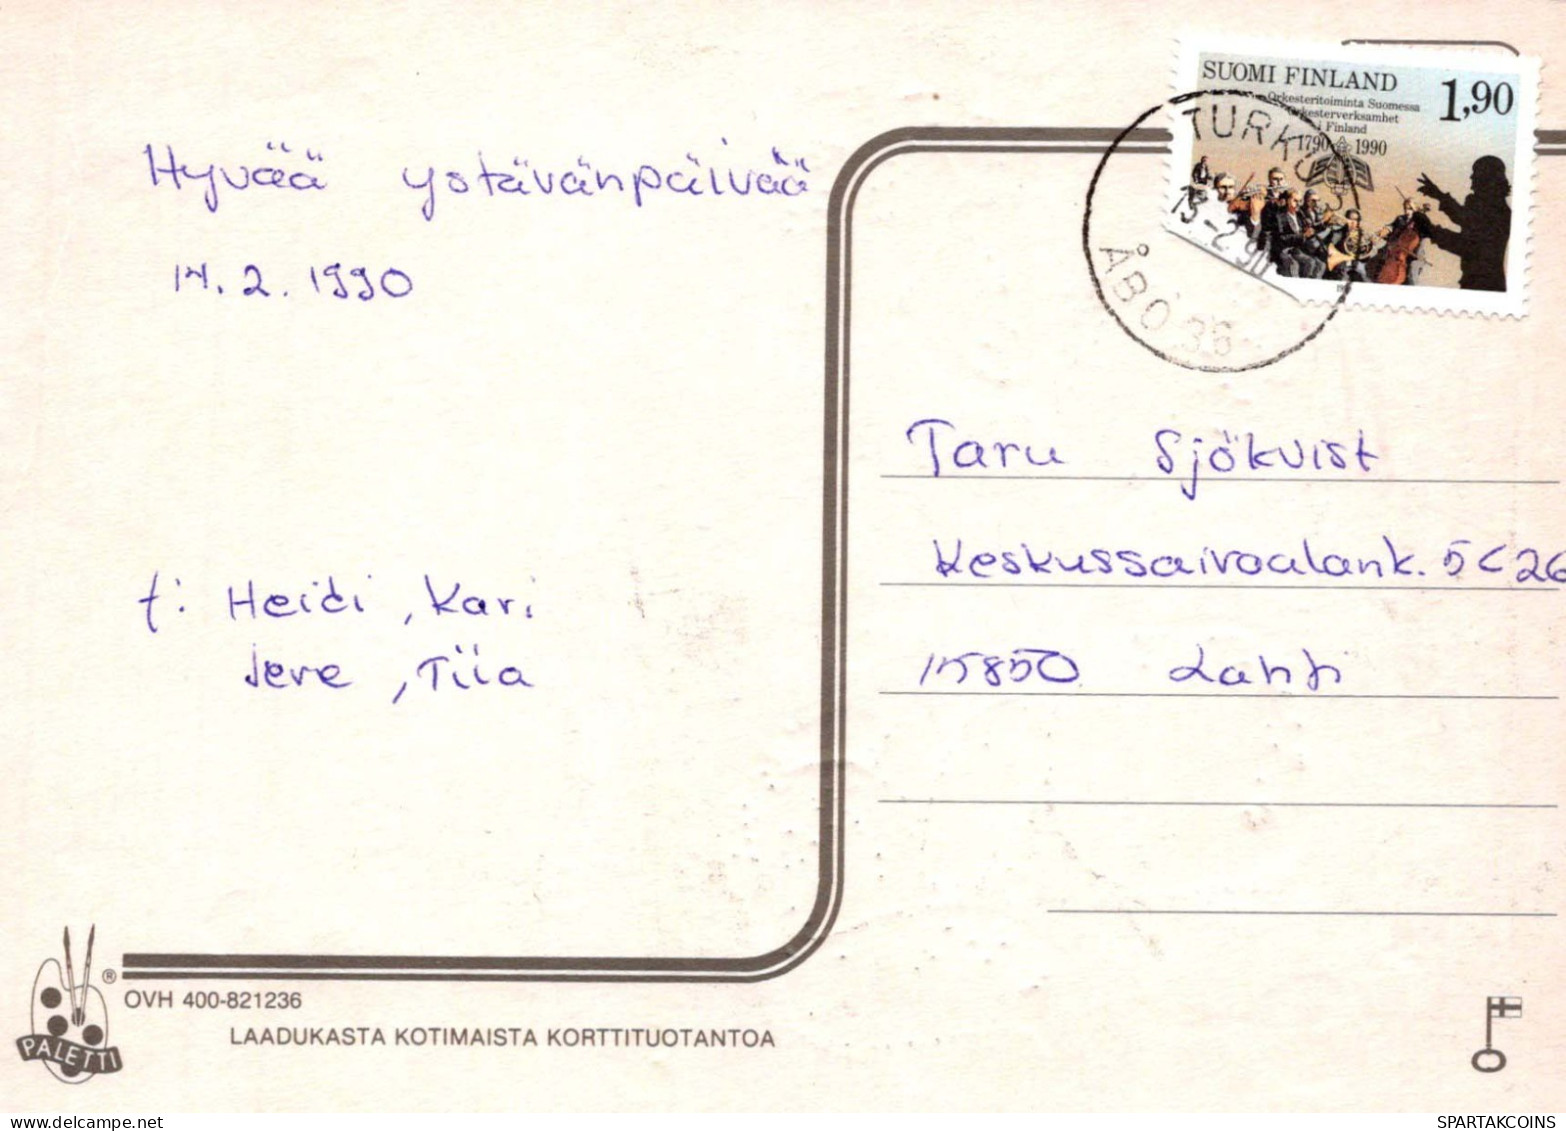 SUOMI FINLAND
1,90
Orkesteritoiminta Suomessa
Orkesterverksamhet
i Finland
1790 1990
TURKU
13-2 90
ÅBO 36
Hyvää ystävänpäivää
14.2.1990
t: Heidi, Kari
Jere, Tiia
Taru Sjökvist
Keskussairaalank. 5 C 26
15850 Lahti
PALETTI
®
OVH 400-821236
LAADUKASTA KOTIMAISTA KORTTITUOTANTOA
https://www.delcampe.net
SPARTAKCOINS